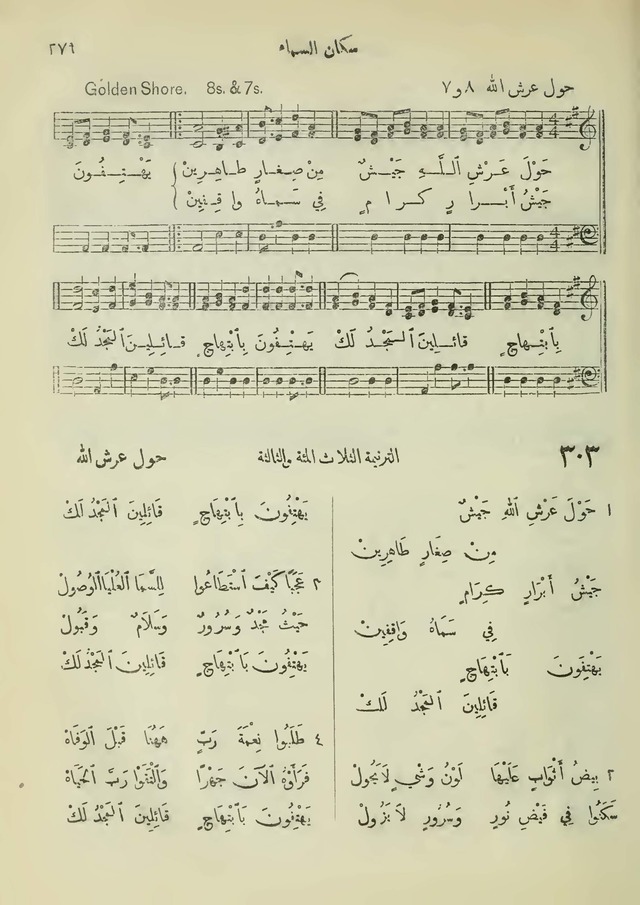 سكان السماء ٢٧٩
حول عرش الله ٨ و ٧ Golden Shore. 8s. & 7s.
حَوْلَ عَرْشِ ٱللّٰهِ جَيْشٌ مِنْ صِغَارٍ طَاهِرِينْ يَهْتِفُونَ
جَيْشُ أَبْرَارٍ كِرَامٍ فِي سَمَاهُ وَاقِفِينْ
بِٱبْتِهَاجٍ قَائِلِينَ ٱلْمَجْدُ لَكْ يَهْتِفُونَ بِٱبْتِهَاجٍ قَائِلِينَ ٱلْمَجْدُ لَكْ
٣٠٣ الترنيمة الثلاث المئة والثالثة حول عرش الله
١ حَوْلَ عَرْشِ ٱللهِ جَيْشٌ
مِنْ صِغَارٍ طَاهِرِينْ
جَيْشُ أَبْرَارٍ كِرَامٍ
فِي سَمَاهُ وَاقِفِينْ
يَهْتِفُونَ بِٱبْتِهَاجٍ
قَائِلِينَ ٱلْمَجْدُ لَكْ
٢ بِيضُ أَثْوَابٍ عَلَيْهَا لَوْنُ وَشْيٍ لَا يَحُولْ
سَكَنُوا فِي فَيْضِ نُورٍ وَسُرُورٍ لَا يَزُولْ
يَهْتِفُونَ بِٱبْتِهَاجٍ قَائِلِينَ ٱلْمَجْدُ لَكْ
٣ عَجَبًا كَيْفَ ٱسْتَطَاعُوا لِلسَّمَا ٱلْعُلْيَا ٱلْوُصُولْ
حَيْثُ مَجْدٌ وَسُرُورٌ وَسَلَامٌ وَقَبُولْ
يَهْتِفُونَ بِٱبْتِهَاجٍ قَائِلِينَ ٱلْمَجْدُ لَكْ
٤ طَلَبُوا نِعْمَةَ رَبٍّ هٰهُنَا قَبْلَ ٱلْوَفَاهْ
فَرَأَوْهُ ٱلْآنَ جَهْرًا وَٱلْتَقَوْا رَبَّ ٱلْحَيَاهْ
يَهْتِفُونَ بِٱبْتِهَاجٍ قَائِلِينَ ٱلْمَجْدُ لَكْ